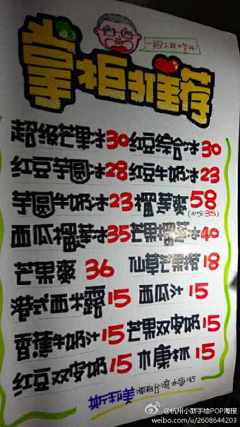 掌柜推荐
超级芒果冰30 红豆综合冰30
红豆芋圆冰28 红豆牛奶冰23
芋圆牛奶冰23 榴莲爽58
西瓜榴莲冰35 芒果榴莲冰40
芒果爽 36 仙草芒果捞18
港式西米露15 西瓜大15
香蕉牛奶汁15 芒果双皮奶15
红豆双皮奶15 木康林15
@杭州小新手绘POP海报
weibo.com/u/2608644203